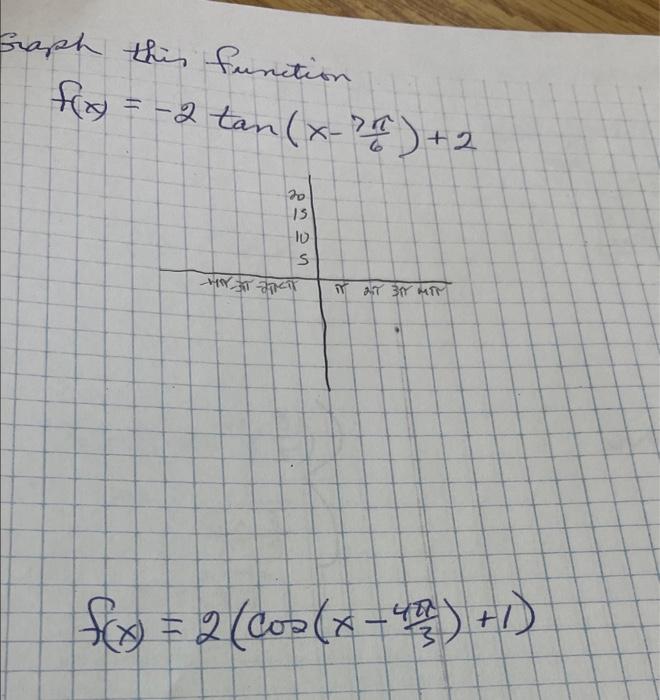 Graph this function
f(x) = -2 tan(x - 7π/6) + 2
20
15
10
5
-4π -3π -2π -π π 2π 3π 4π
f(x) = 2(cos(x - 4π/3) + 1)